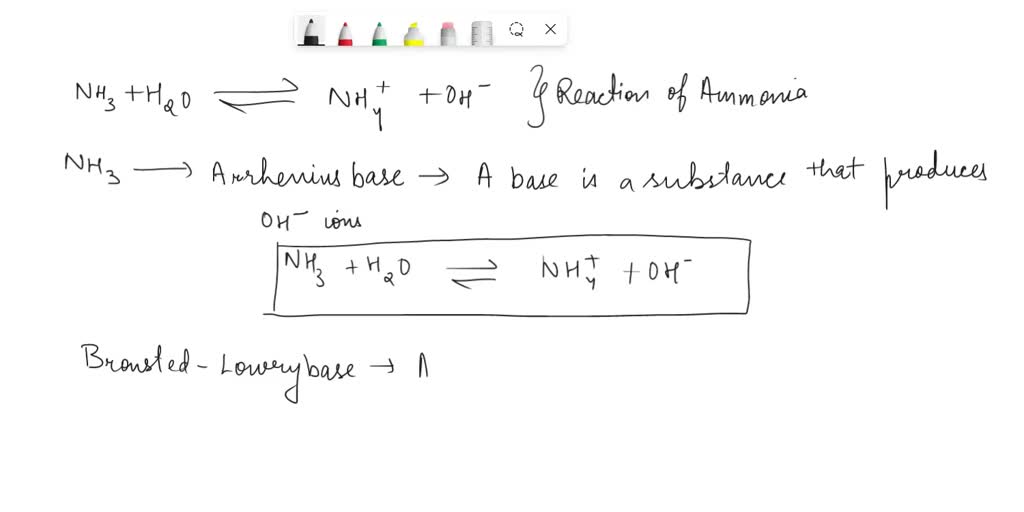 NH₃ + H₂O ⇌ NH₄⁺ + OH⁻ } Reaction of Ammonia
NH₃ → Arrhenius base → A base is a substance that produces
OH⁻ ions
NH₃ + H₂O ⇌ NH₄⁺ + OH⁻
Bronsted - Lowery base → A